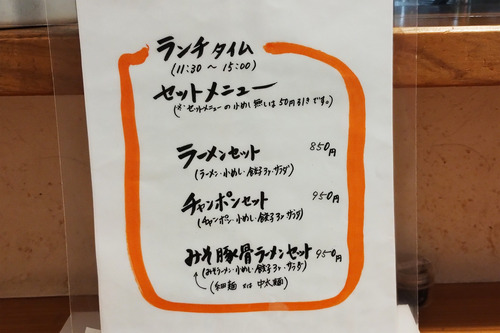 ランチタイム
(11:30 ～ 15:00)
セットメニュー
(※セットメニューの小めし無しは50円引きです。)
ラーメンセット 850円
(ラーメン・小めし・餃子3ヶ・サラダ)
チャンポンセット 950円
(チャンポン・小めし・餃子3ヶ・サラダ)
みそ豚骨ラーメンセット 950円
(みそラーメン・小めし・餃子3ヶ・サラダ)
(細麺 又は 中太麺)